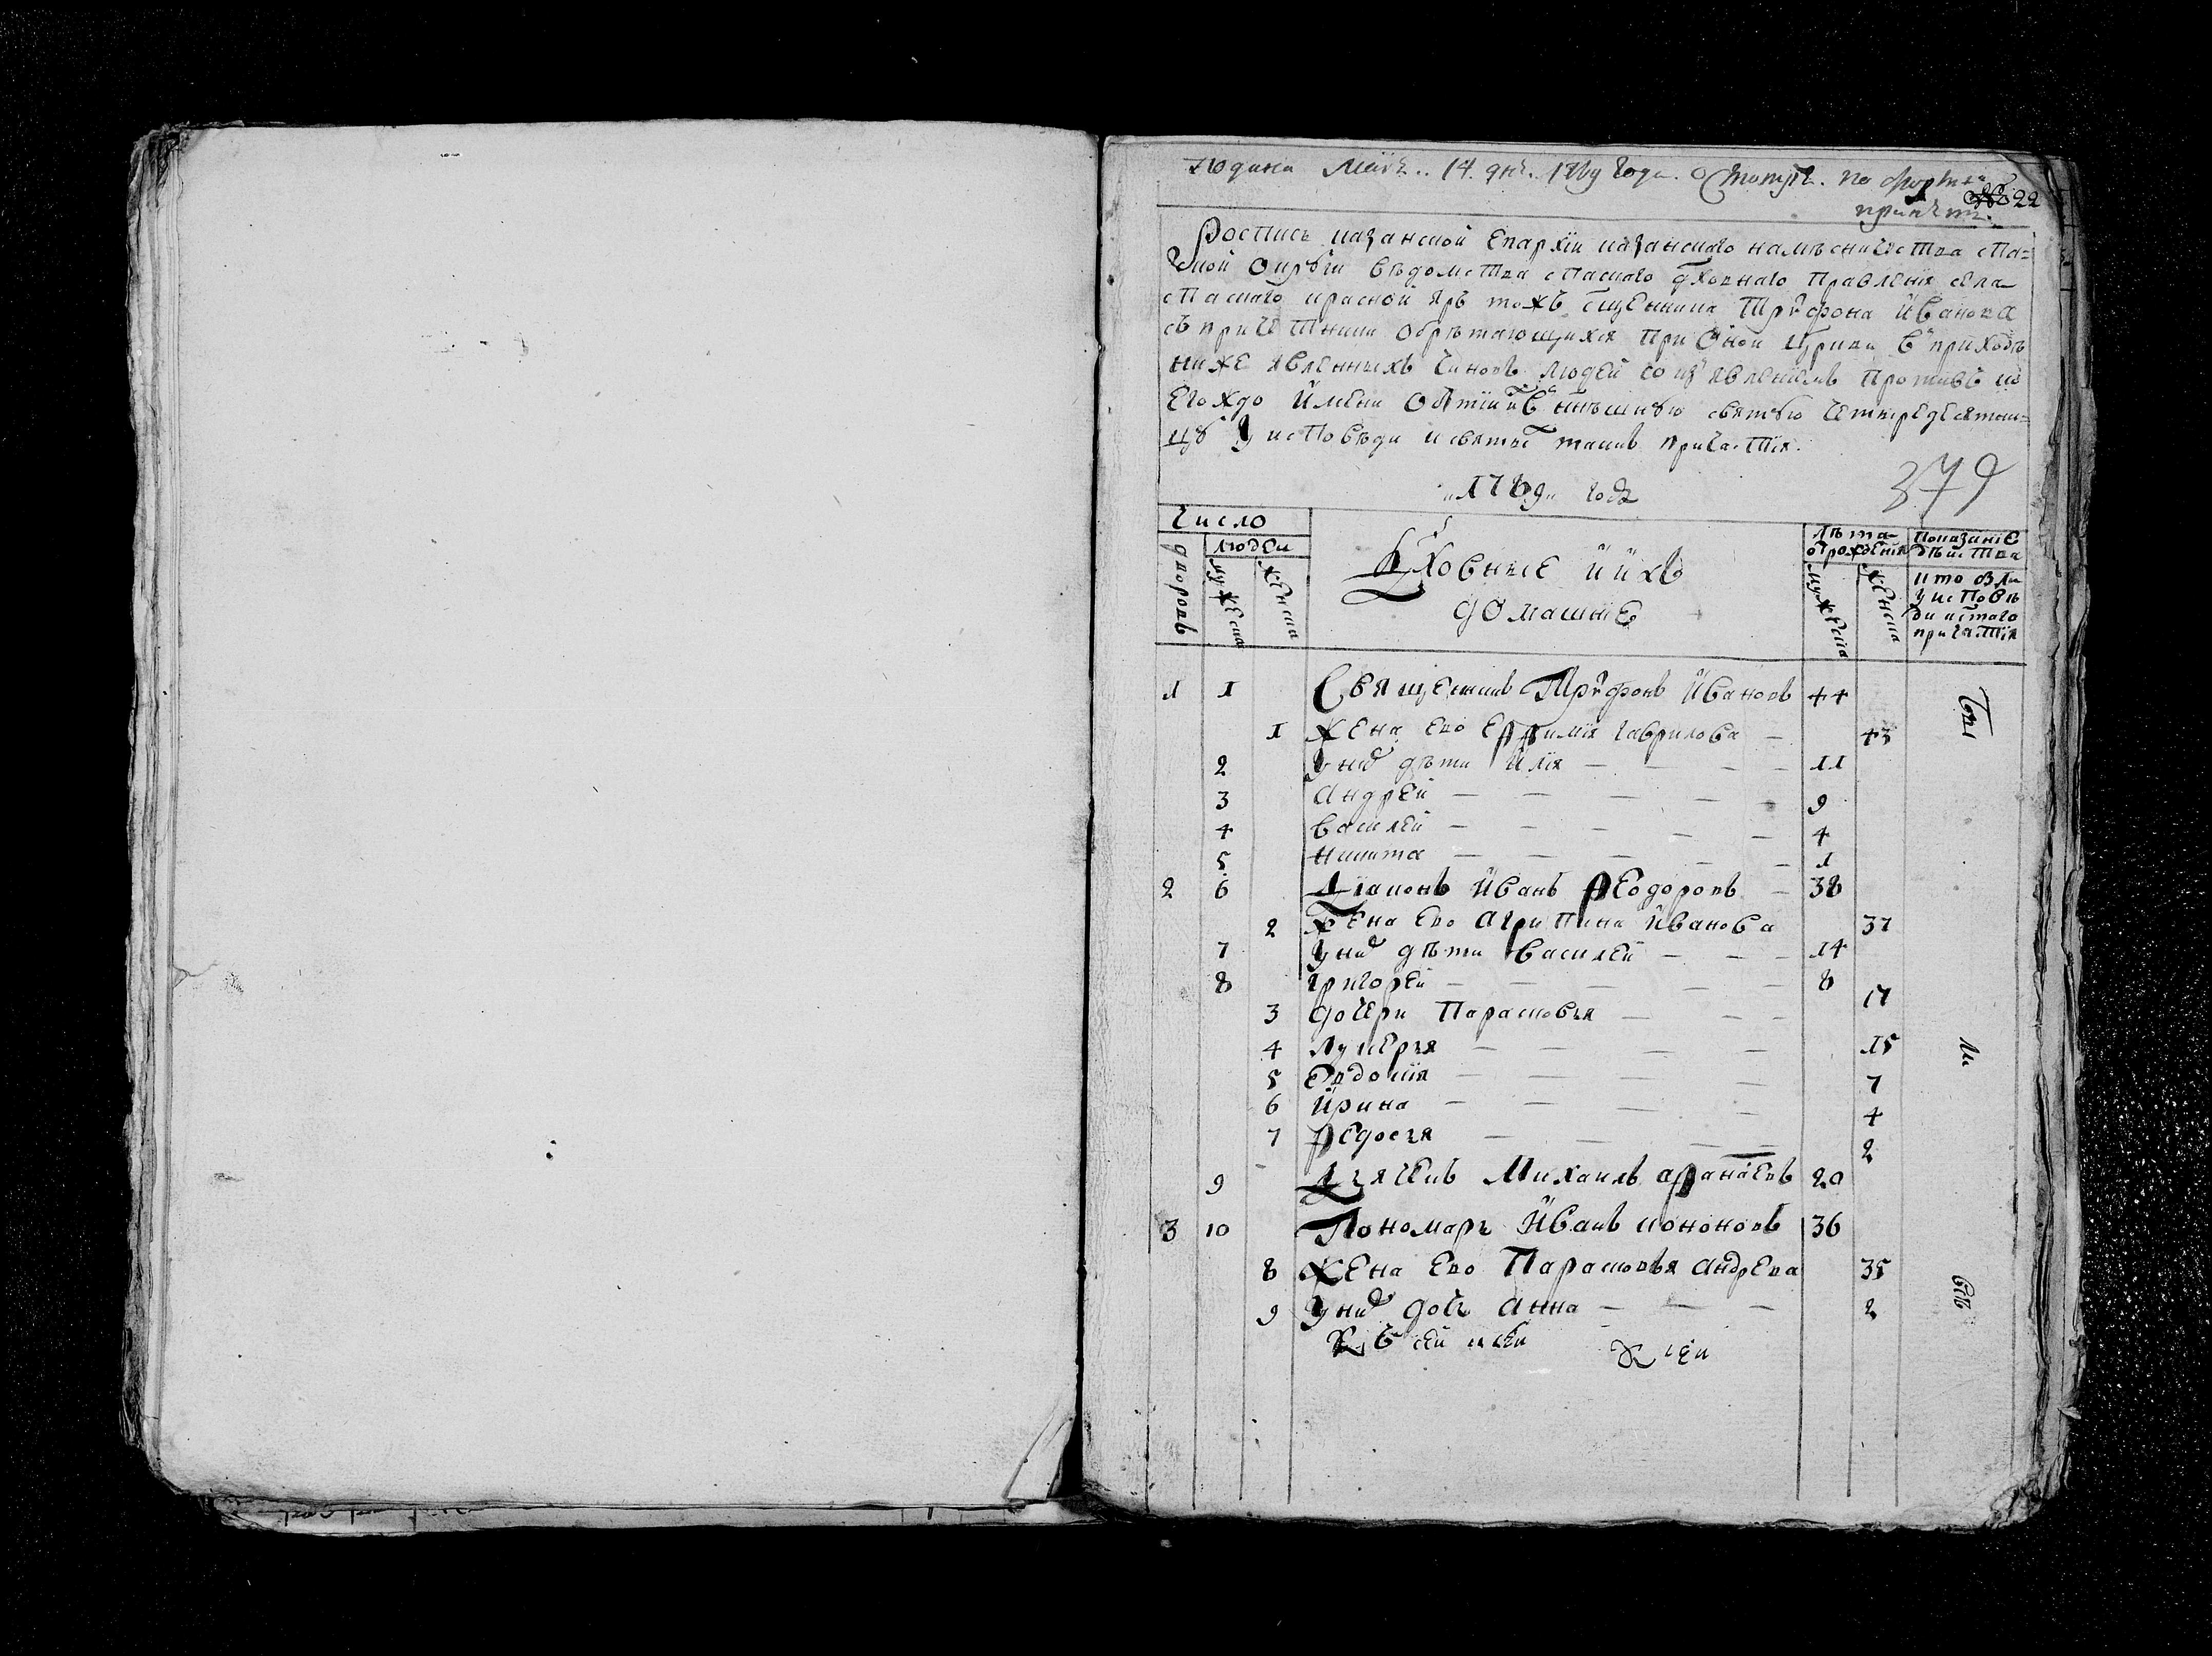 Подана маиѧ .. 14. дня. 1789 года. Смотрѣ. по
№ 22
Роспись казанской Епархїи казанскаго намѣсничества спа=
ской округи вѣдомства спаскаго дховнаго правленїя села
спаскаго красной яръ тожъ сщенника Трїфона Иванова
съ причетники обрѣтающихся при оной цркви в приходѣ
ниже явленныхъ чиновъ людей со изъявленїемъ противъ ко
егождо имени о бытїи ихъ в нынѣшнюю святую четыредесятни=
цу у исповѣди и святыхъ таинъ причастїя.
1789 годъ
379
Число
людеи
дворовъ
мужеска
женска
Дховные и ихъ
домашние
Лѣта
от рожденїя
мужеска
женска
показание
дѣйства
кто былъ
у исповѣ
ди и стаго
причастїя
1 1 Священникъ Трїфонъ Ивановъ 44 были
1 жена ево Ефимия гаврилова — 43
2 у них дѣти Илія — — — — 11
3 Андрей — — — — — 9
4 Василей — — — — — 4
5 Никита — — — — — 1
2 6 Дїаконъ Иванъ Ѳеодоровъ — 38
2 Жена ево Агрипина Иванова 37
7 у них дѣти Василей — — — 14
8 григорей — — — — — 8
3 дочери Парасковья — — — 17
4 Лукерья — — — — 15
5 Евдокия — — — — 7
6 Ирина — — — — 4
7 Ѳедосья — — — — 2
9 Дьячекъ Михаилъ Афанасевъ 20
3 10 Пономарь Иванъ Кононовъ 36
8 Жена ево Парасковья Андрева 35
9 у них дочь Анна — — — 2